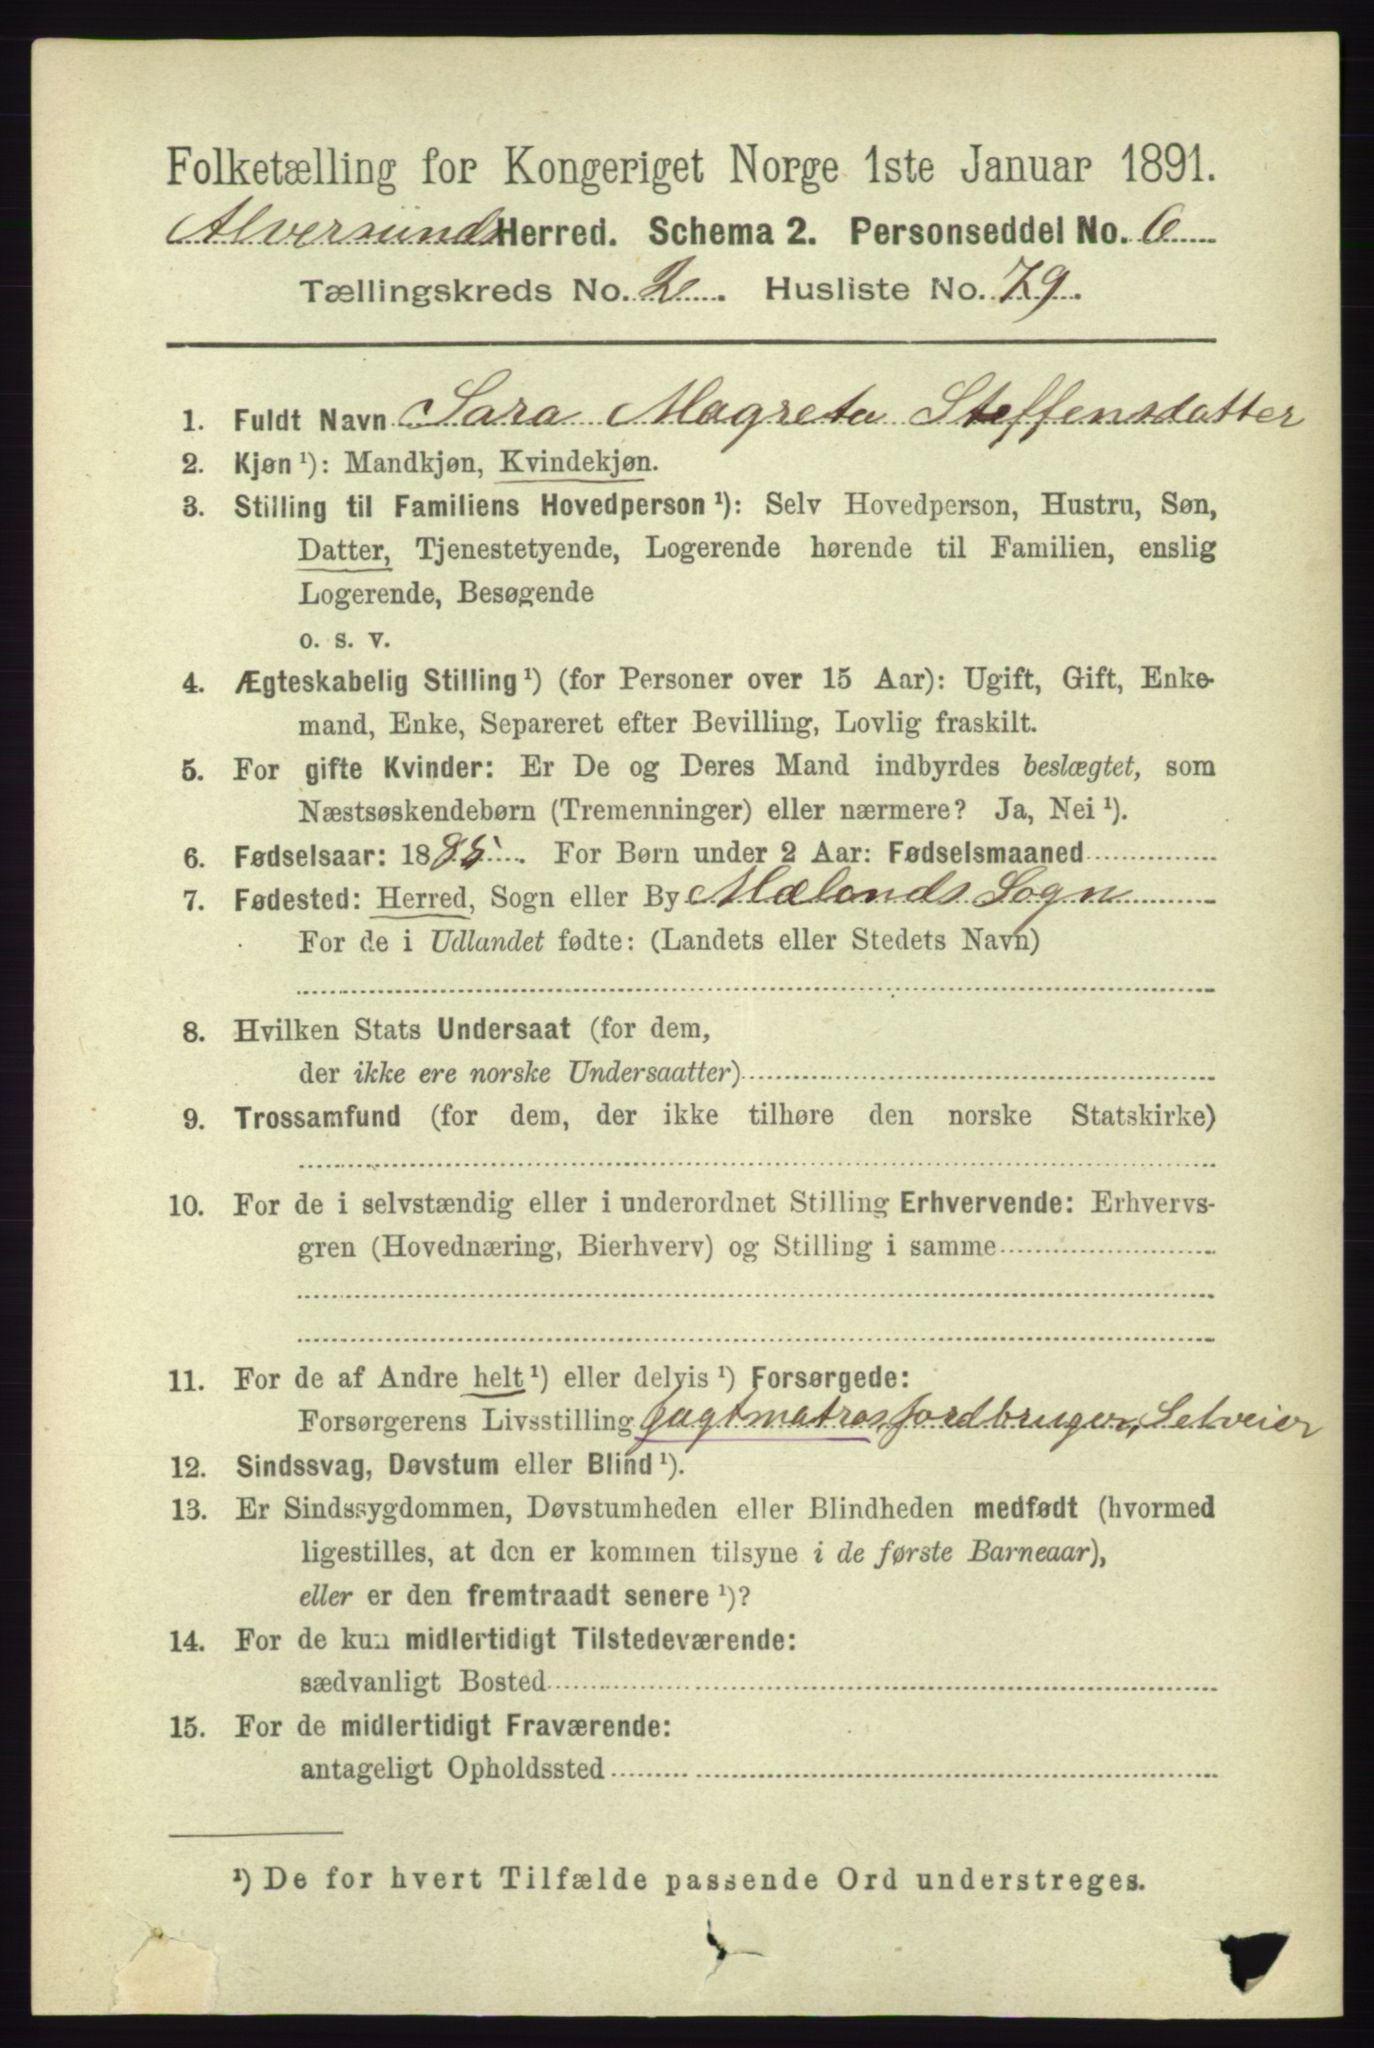 Folketælling for Kongeriget Norge 1ste Januar 1891.
Alversunds Herred. Schema 2. Personseddel No. 6
Tællingskreds No. 2. Husliste No. 79.
1. Fuldt Navn Sara Magreta Steffensdatter
2. Kjøn ¹): Mandkjøn, Kvindekjøn.
3. Stilling til Familiens Hovedperson ¹): Selv Hovedperson, Hustru, Søn,
Datter, Tjenestetyende, Logerende hørende til Familien, enslig
Logerende, Besøgende
o. s. v.
4. Ægteskabelig Stilling ¹) (for Personer over 15 Aar): Ugift, Gift, Enke-
mand, Enke, Separeret efter Bevilling, Lovlig fraskilt.
5. For gifte Kvinder: Er De og Deres Mand indbyrdes beslægtet, som
Næstsøskendebørn (Tremenninger) eller nærmere? Ja, Nei ¹).
6. Fødselsaar: 1885. For Børn under 2 Aar: Fødselsmaaned
7. Fødested: Herred, Sogn eller By Mælands Sogn
For de i Udlandet fødte: (Landets eller Stedets Navn)
8. Hvilken Stats Undersaat (for dem,
der ikke ere norske Undersaatter)
9. Trossamfund (for dem, der ikke tilhøre den norske Statskirke)
10. For de i selvstændig eller i underordnet Stilling Erhvervende: Erhvervs-
gren (Hovednæring, Bierhverv) og Stilling i samme
11. For de af Andre helt ¹) eller delvis ¹) Forsørgede:
Forsørgerens Livsstilling Jagtmatros, Jordbruger, Selveier
12. Sindssvag, Døvstum eller Blind ¹).
13. Er Sindssygdommen, Døvstumheden eller Blindheden medfødt (hvormed
ligestilles, at den er kommen tilsyne i de første Barneaar),
eller er den fremtraadt senere ¹)?
14. For de kun midlertidigt Tilstedeværende:
sædvanligt Bosted
15. For de midlertidigt Fraværende:
antageligt Opholdssted
¹) De for hvert Tilfælde passende Ord understreges.